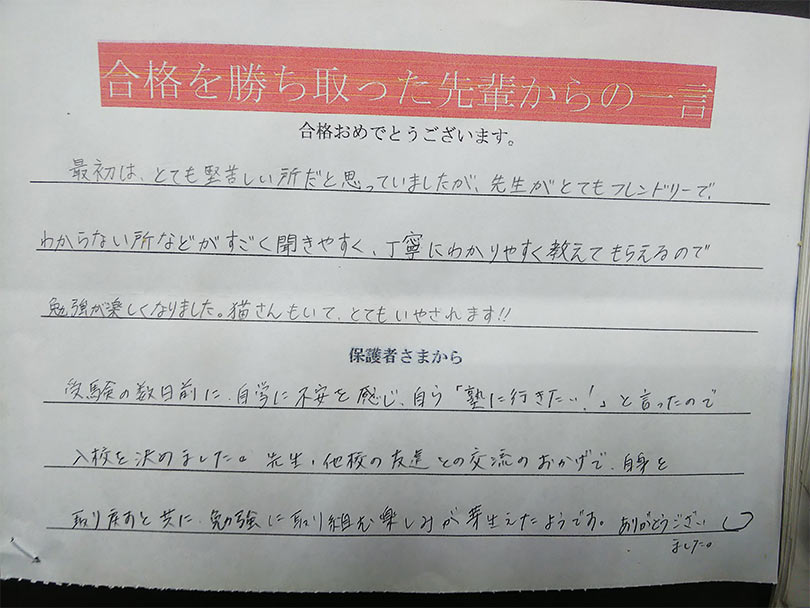 合格を勝ち取った先輩からの一言
合格おめでとうございます。
最初は、とても堅苦しい所だと思っていましたが、先生がとてもフレンドリーで、
わからない所などがすごく聞きやすく、丁寧にわかりやすく教えてもらえるので
勉強が楽しくなりました。猫さんもいて、とてもいやされます!!
保護者さまから
受験の数日前に、自学に不安を感じ、自ら「塾に行きたい!」と言ったので
入校を決めました。先生、他校の友達との交流のおかげで、自身を
取り戻すと共に、勉強に取り組む楽しみが芽生えたようです。ありがとうござい
ました。